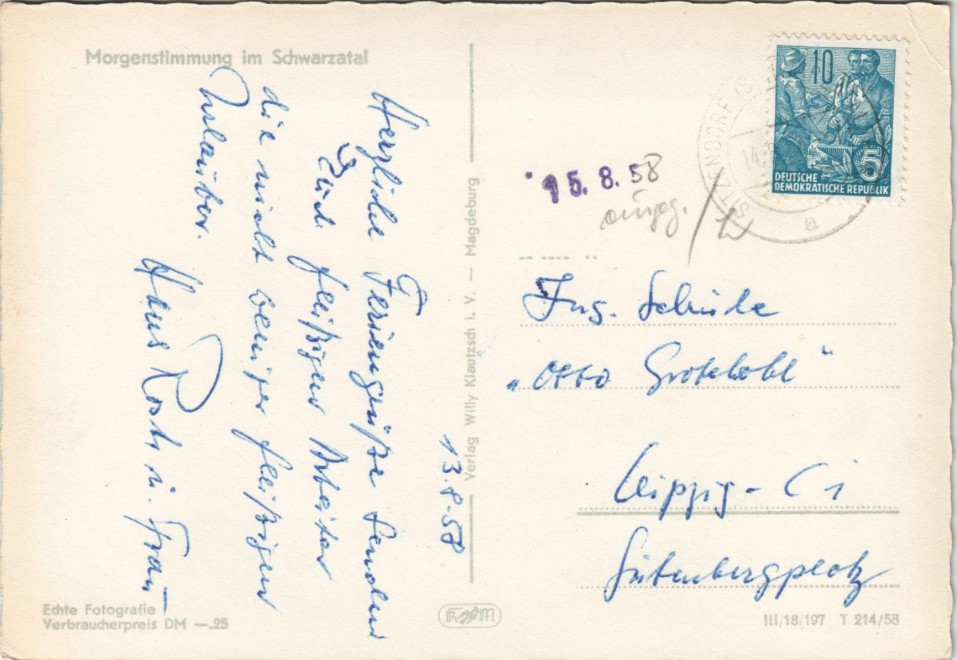 Morgenstimmung im Schwarzatal
13.8.58
Herzliche Feriengrüße senden
Euch fleißigen Arbeiter
die nicht weniger fleißigen
Urlauber.
Hans Rost u. Frau
Verlag Willy Klautzsch i. V. — Magdeburg
Echte Fotografie
Verbraucherpreis DM —.25
10
5
DEUTSCHE
DEMOKRATISCHE REPUBLIK
SITZENDORF
a
15.8.58
Ing. Schule
„Otto Grotewohl"
Leipzig - C 1
Gutenbergplatz
III/18/197 T 214/58